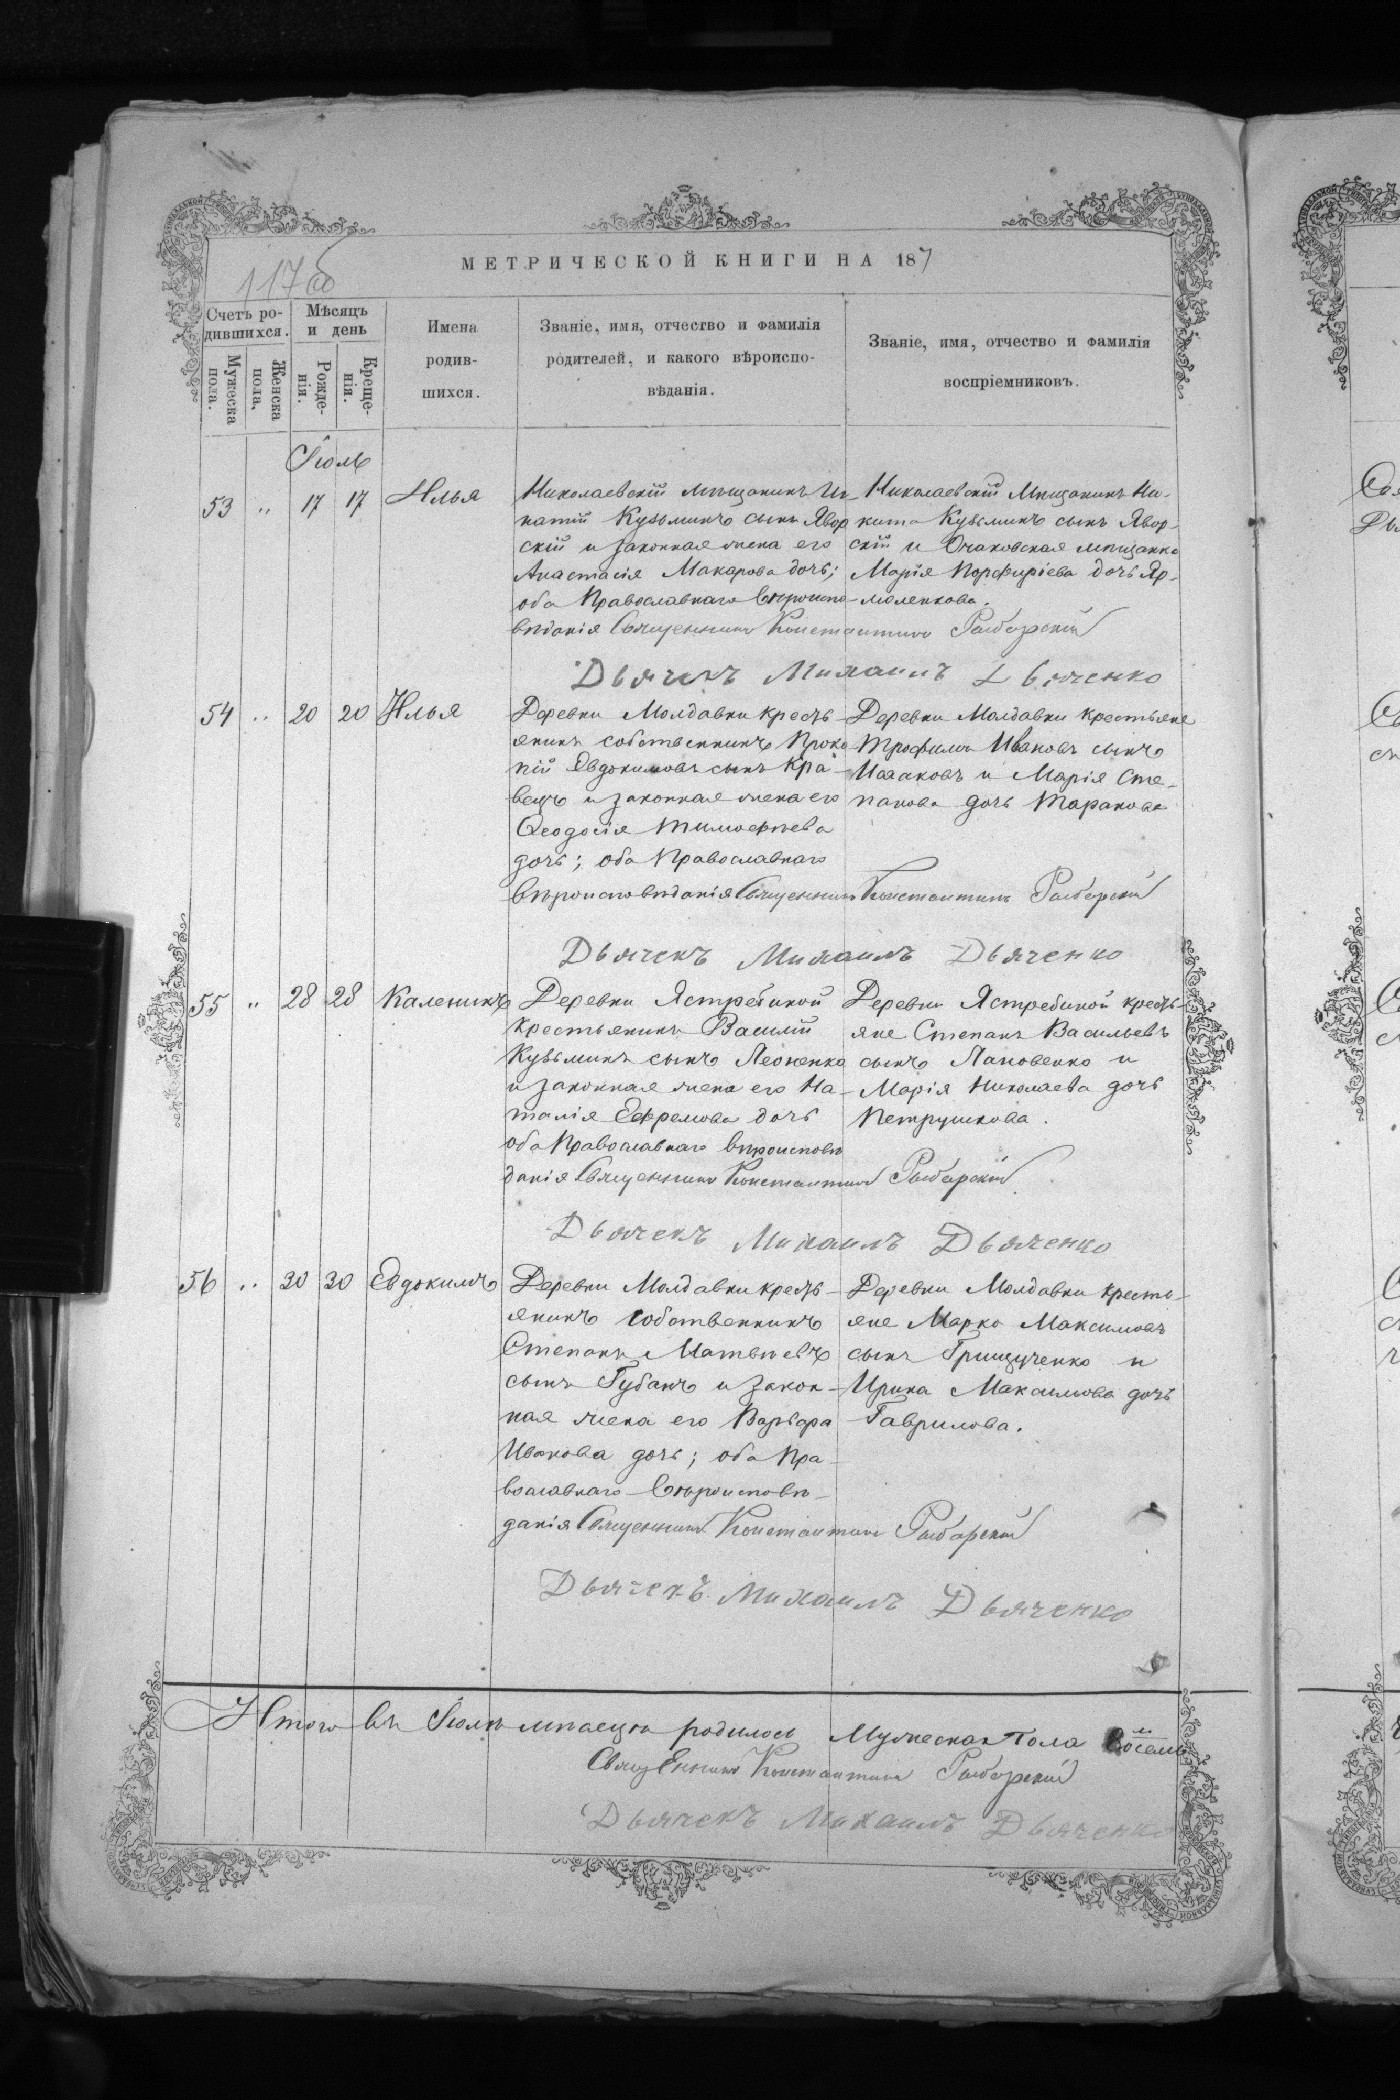 117об
МЕТРИЧЕСКОЙ КНИГИ НА 187
Счетъ ро-
дившихся.
Мужеска
пола.
Женска
пола,
Мѣсяцъ
и день
Рожде-
нія.
Креще-
нія.
Имена
родив-
шихся.
Званіе, имя, отчество и фамилія
родителей, и какого вѣроиспо-
вѣданія.
Званіе, имя, отчество и фамилія
воспріемниковъ.
Іюль
53 „ 17 17 Илья
Николаевскій мѣщанинъ Иг-
натій Кузьминъ сынъ Явор
скій и законная жена его
Анастасія Макарова дочь;
оба Православнаго вѣроиспо-
вѣданія Священникъ Константинъ Рыбарскій
Николаевскій Мѣщанинъ Ни-
кита Кузьминъ сынъ Явор-
скій и Очаковская мѣщанка
Марія Порфиріева дочь Яр-
моленкова.
Дьячекъ Михаилъ Дьяченко
54 „ 20 20 Илья
Деревни Молдавки кресть-
янинъ собственникъ Проко
пій Евдокимовъ сынъ Кра-
вецъ и законная жена его
Ѳеодосія Тимофѣева
дочь; оба Православнаго
вѣроисповѣданія Священникъ Константинъ Рыбарскій
Деревни Молдавки крестьяне
Трофимъ Ивановъ сынъ
и Марія Сте-
панова дочь Таранова
Дьячекъ Михаилъ Дьяченко
55 „ 28 28 Каленикъ
Деревни Ястребиной
крестьянинъ Василій
Кузьминъ сынъ Леоненко
и законная жена его На-
талія Ефремова дочь
оба Православнаго вѣроисповѣ
данія Священникъ Константинъ Рыбарскій
Деревни Ястребиной кресть-
яне Степанъ Васильевъ
сынъ Лановенко и
Марія Николаева дочь
Петрушкова.
Дьячекъ Михаилъ Дьяченко
56 „ 30 30 Евдокимъ
Деревни Молдавки кресть-
янинъ собственникъ
Степанъ Матвѣевъ
сынъ Губанъ и закон-
ная жена его Варвара
Иванова дочь; оба Пра-
вославнаго вѣроисповѣ-
данія Священникъ Константинъ Рыбарскій
Деревни Молдавки кресть-
яне Марко Максимовъ
сынъ Грищученко и
Ирина Максимова дочь
Гаврилова.
Дьячекъ Михаилъ Дьяченко
Итого въ Іюлѣ мѣсяцѣ родилось Мужеска пола восемь
Священникъ Константинъ Рыбарскій
Дьячекъ Михаилъ Дьяченко